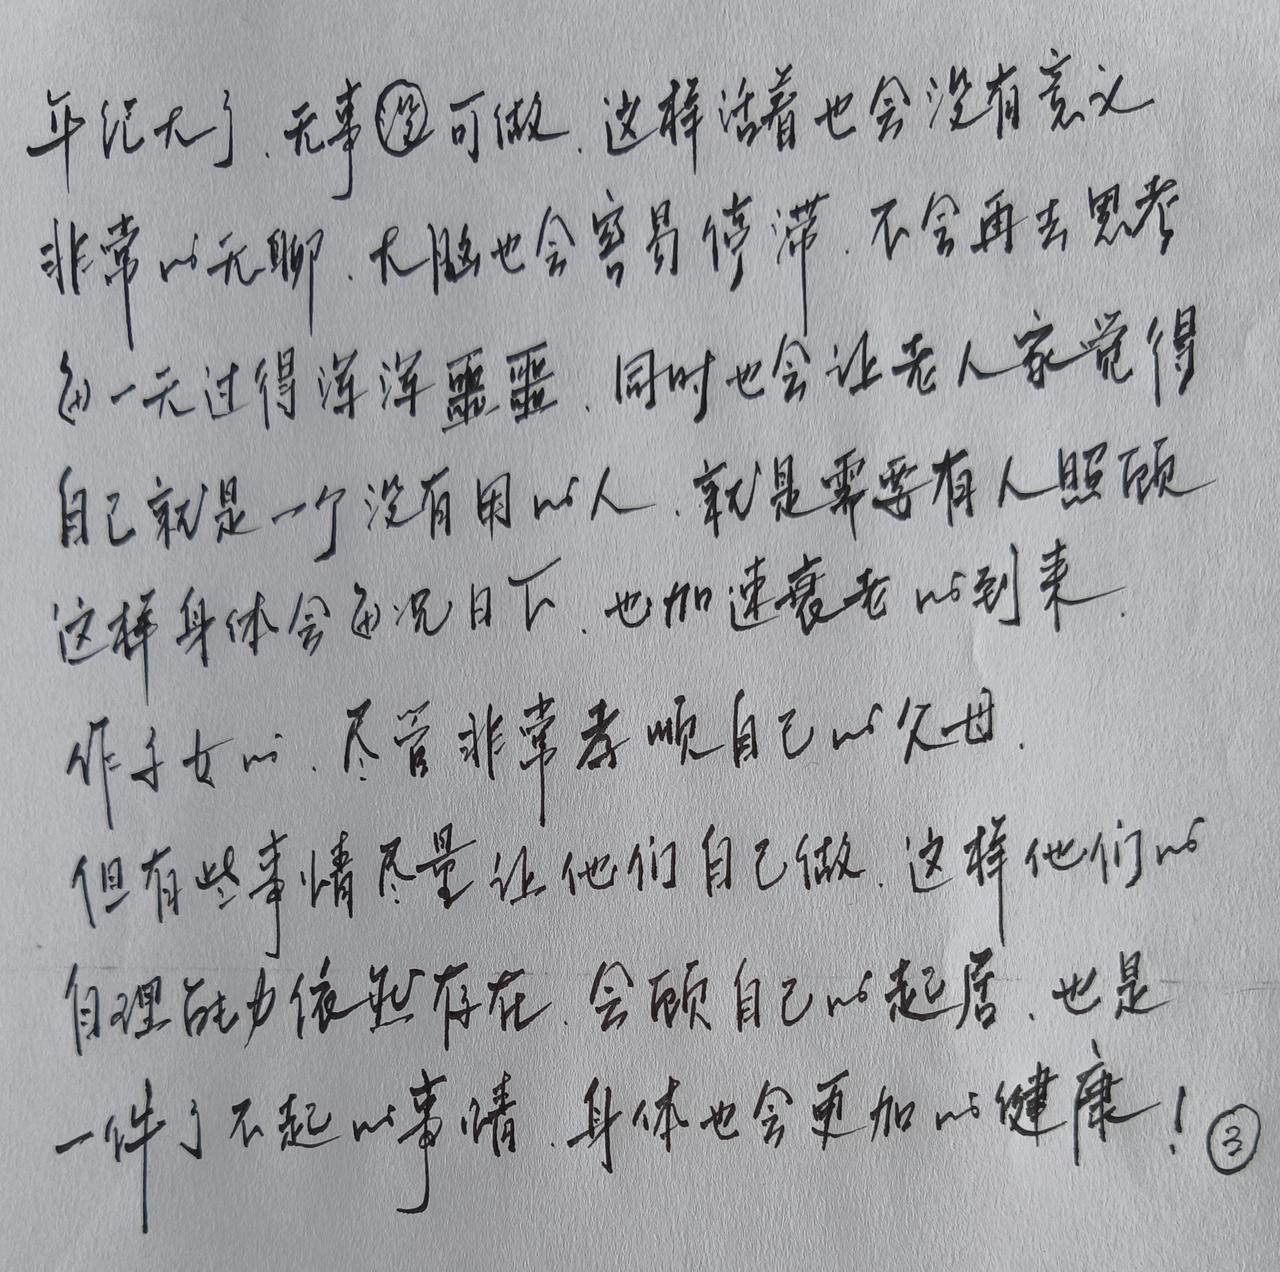 年纪大了、无事没可做、这样活着也会没有意义
非常的无聊、大脑也会容易停滞、不会再去思考
每一天过得浑浑噩噩、同时也会让老人家觉得
自己就是一个没有用的人、就是需要有人照顾
这样身体会每况日下、也加速衰老的到来、
作子女的、尽管非常孝顺自己的父母、
但有些事情尽量让他们自己做、这样他们的
自理能力依然存在、会顾自己的起居、也是
一件了不起的事情、身体也会更加的健康！
③